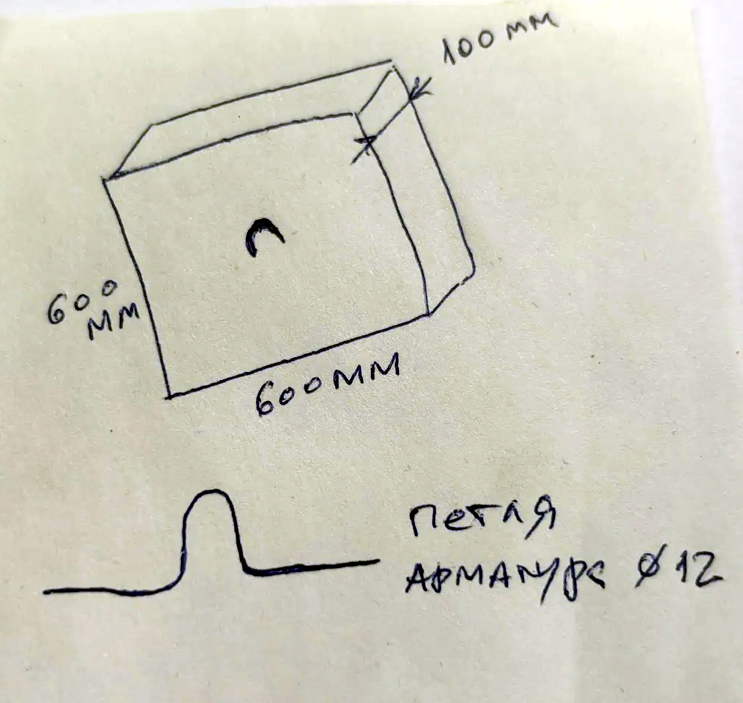 100 мм
600
мм
600мм
петля
арматура ø12